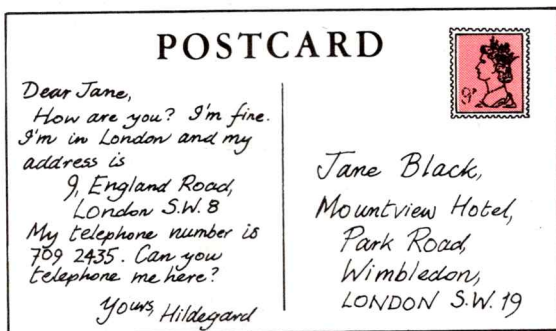 POSTCARD
Dear Jane,
How are you? I'm fine.
I'm in London and my
address is
9, England Road,
London S.W. 8
My telephone number is
709 2435. Can you
telephone me here?
Yours, Hildegard
9P
Jane Black,
Mountview Hotel,
Park Road,
Wimbledon,
LONDON S.W. 19